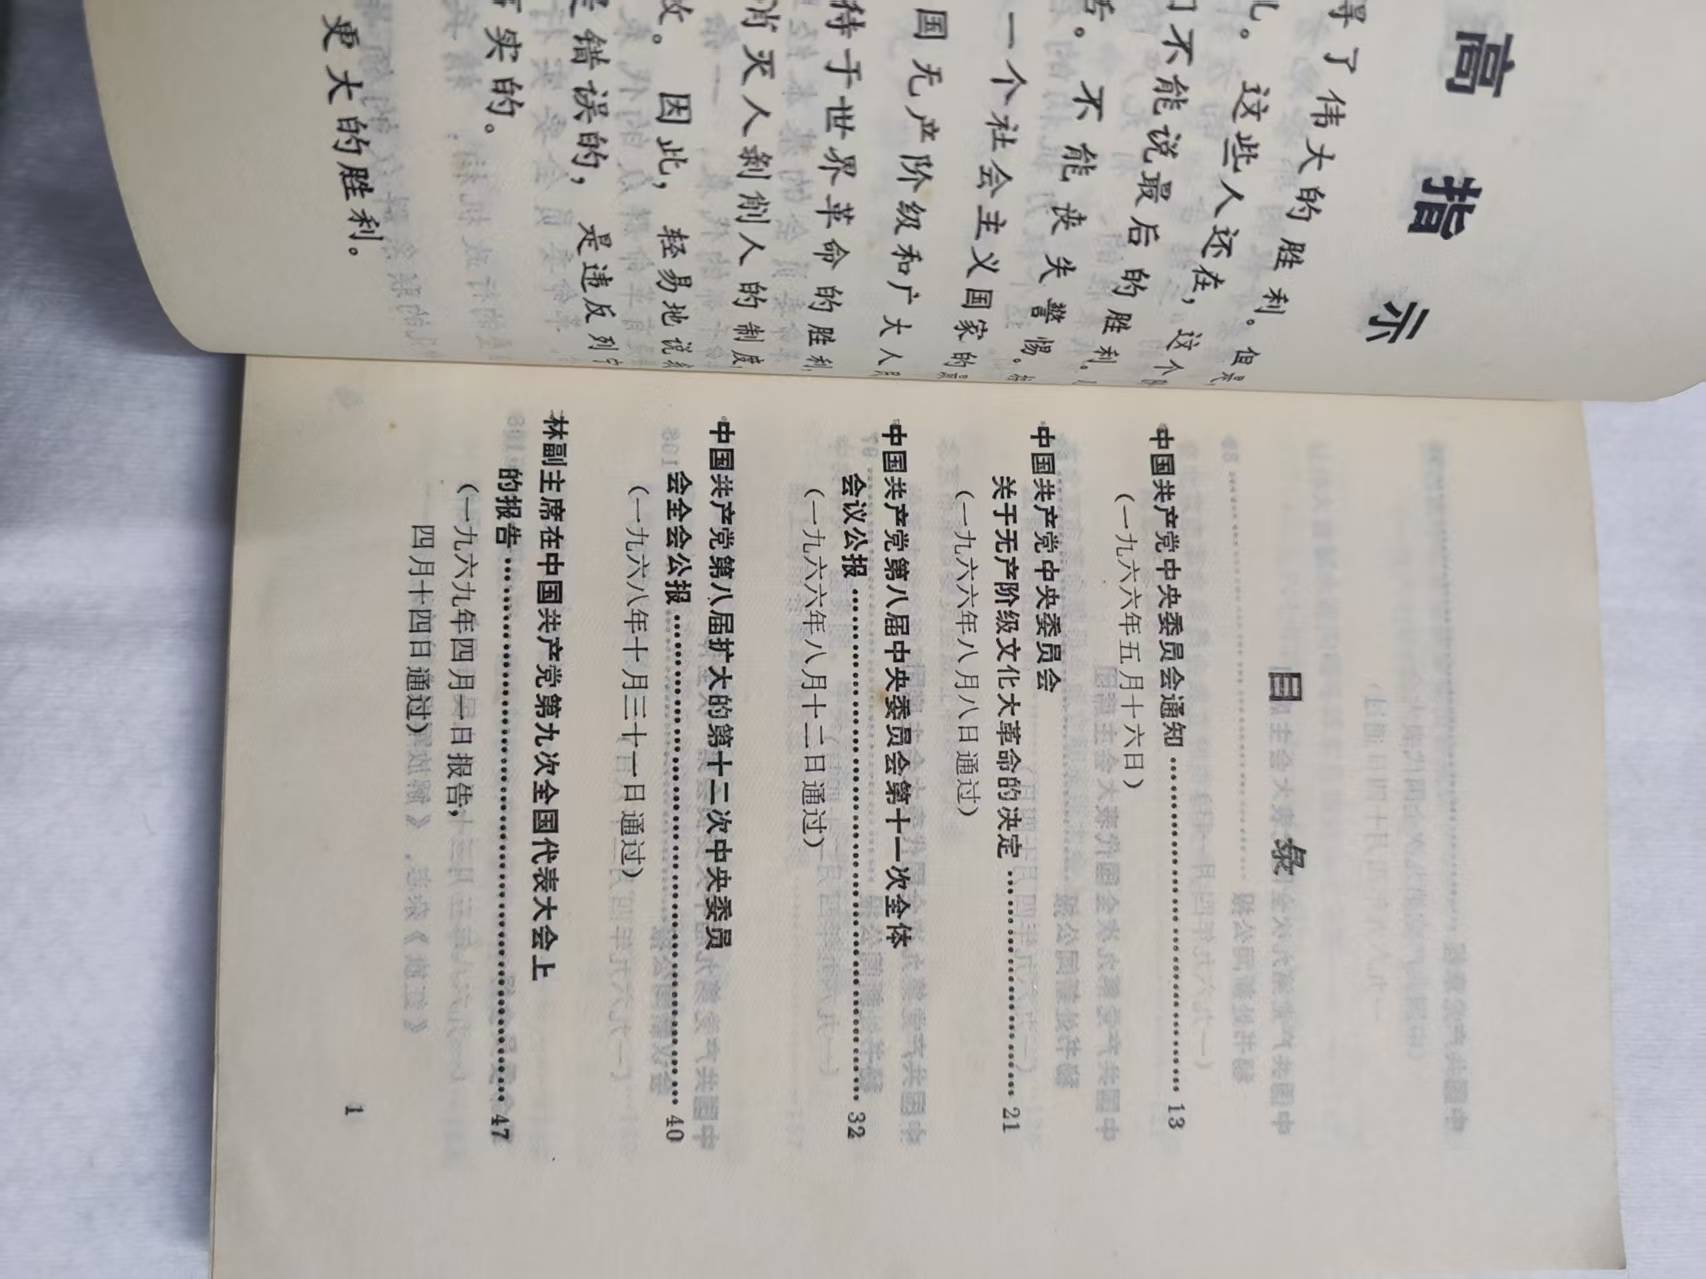 高指示
得了伟大的胜利。但是,
这些人还在,这个
们不能说最后的胜利。
不能丧失警惕。
一个社会主义国家的
国无产阶级和广大人
待于世界革命的胜利
消灭人剥削人的制度,
因此,轻易地说
是错误的,是违反列
实的。
更大的胜利。
目录
中国共产党中央委员会通知……13
(一九六六年五月十六日)
中国共产党中央委员会
关于无产阶级文化大革命的决定……21
(一九六六年八月八日通过)
中国共产党第八届中央委员会第十一次全体
会议公报……32
(一九六六年八月十二日通过)
中国共产党第八届扩大的第十二次中央委员
会全会公报……40
(一九六八年十月三十一日通过)
林副主席在中国共产党第九次全国代表大会上
的报告……47
(一九六九年四月一日报告,
四月十四日通过)
1